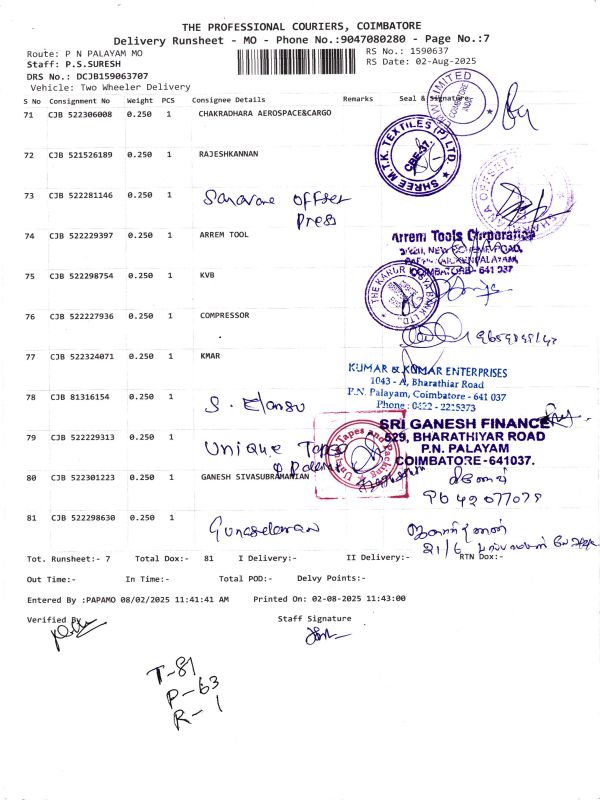 THE PROFESSIONAL COURIERS, COIMBATORE
Delivery Runsheet - MO - Phone No.:9047080280 - Page No.:7
Route: P N PALAYAM MO
RS No.: 1590637
Staff: P.S.SURESH
RS Date: 02-Aug-2025
DRS No.: DCJB159063707
Vehicle: Two Wheeler Delivery
S No Consignment No Weight PCS Consignee Details Remarks Seal & Signature
71 CJB 522306008 0.250 1 CHAKRADHARA AEROSPACE&CARGO
LIMITED COIMBATORE INDIA
72 CJB 521526189 0.250 1 RAJESHKANNAN
SHREE M.T.K. TEXTILES (P) LTD. CBE-37.
73 CJB 522281146 0.250 1 Saravana Offset
Press
74 CJB 522229397 0.250 1 ARREM TOOL
Arrem Tools Corporation
COIMBATORE - 641 037
75 CJB 522298754 0.250 1 KVB
THE KARUR VYSYA BANK LTD.
76 CJB 522227936 0.250 1 COMPRESSOR
77 CJB 522324071 0.250 1 KMAR
KUMAR & KUMAR ENTERPRISES
1043 - A, Bharathiar Road
P.N. Palayam, Coimbatore - 641 037
Phone : 0422 - 2215373
78 CJB 81316154 0.250 1 S. Elango
SRI GANESH FINANCE
529, BHARATHIYAR ROAD
P.N. PALAYAM
COIMBATORE - 641037.
79 CJB 522229313 0.250 1 Unique Tapes
Unique Tapes and Packing
80 CJB 522301223 0.250 1 GANESH SIVASUBRAMANIAN
81 CJB 522298630 0.250 1 Gunaseelawan
Tot. Runsheet:- 7 Total Dox:- 81 I Delivery:- II Delivery:- RTN Dox:-
Out Time:- In Time:- Total POD:- Delvy Points:-
Entered By :PAPAMO 08/02/2025 11:41:41 AM Printed On: 02-08-2025 11:43:00
Verified By Staff Signature
T-81
P-63
R-1